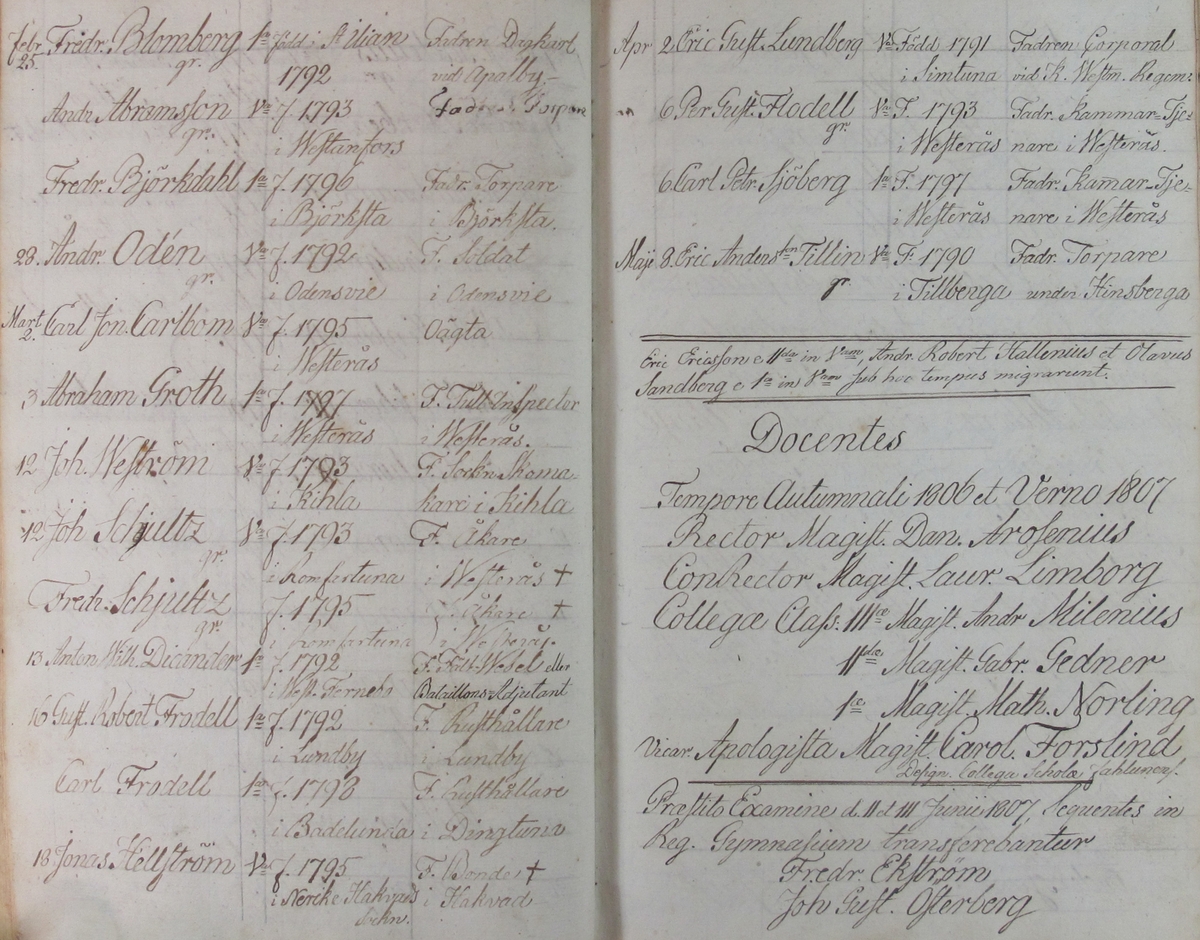 Febr. 25. Fredr. Blomberg 1a född i Kilian Fadren Dagkarl
gr. 1792 vid Apalby
Andr Abramsson Va f. 1793
gr. i Westanfors
Fredr. Björkdahl 1a f. 1796 Fadr. Torpare
i Björksta i Björksta.
28. Andr. Odén Va f. 1792 F. Soldat
gr. i Odensvie i Odensvie
Mart. 2. Carl Jon. Carlbom Va f. 1795 Oägta
i Westerås
3 Abraham Groth 1a f. 1797 F. Tull-Inspector
i Westerås i Westerås.
12 Joh. Weström Va f. 1793 F. Sockn Skoma-
i Kihla kare i Kihla
12 Joh Schjultz Va f. 1793 F. Åkare
gr. i Romfertuna i Westerås †
Fredr. Schjultz f. 1795 Åkare †
gr. i Romfertuna i Westerås.
13 Anton Wilh. Diander 1a f. 1792 F. Fält-Webel eller
i West. Fernebo Bataillons-Adjutant
16 Gust. Robert Frodell 1a f. 1792 F. Rusthållare
i Lundby i Lundby
Carl Frodell 1a f. 1798 F. Rusthållare
i Badelunda i Dingtuna
18 Jonas Hellström Va f. 1795 F. Bonde †
i Nerike Hakvads i Hakvad
Sockn.
Apr 2. Eric Gust. Lundberg Va Född 1791 Fadren Corporal
i Simtuna vid K. Westm. Regem:
6 Per Gust. Flodell Va F. 1793 Fadr. Kammar-Tje-
gr. i Westerås nare i Westerås.
6 Carl Petr. Sjöberg 1a F. 1797 Fadr. Kamar-Tje-
i Westerås nare i Westerås
Maji 8. Eric Anders son Tillin Va F. 1790 Fadr. Torpare
gr i Tillberga under Hinsberga
Eric Ericsson e IIda in Vam, Andr. Robert Hallenius et Olavus
Sandberg e 1a in Vam sub hoc tempus migrarunt.
Docentes
Tempore Autumnali 1806 et Verno 1807
Rector Magist. Dan. Arosenius
ConRector Magist. Laur. Limborg
Collegæ Class. IIIæ Magist. Andr Milenius
IIdæ Magist. Gabr. Gedner
1æ Magist. Math. Norling
Vicar. Apologista Magist. Carol. Forslind
Design. Collega Scholæ Fahlunens.
Præstito Examine d. II et III Junii 1807, sequentes in
Reg. Gymnasium transferebantur
Fredr. Ekström
Joh Gust. Österberg